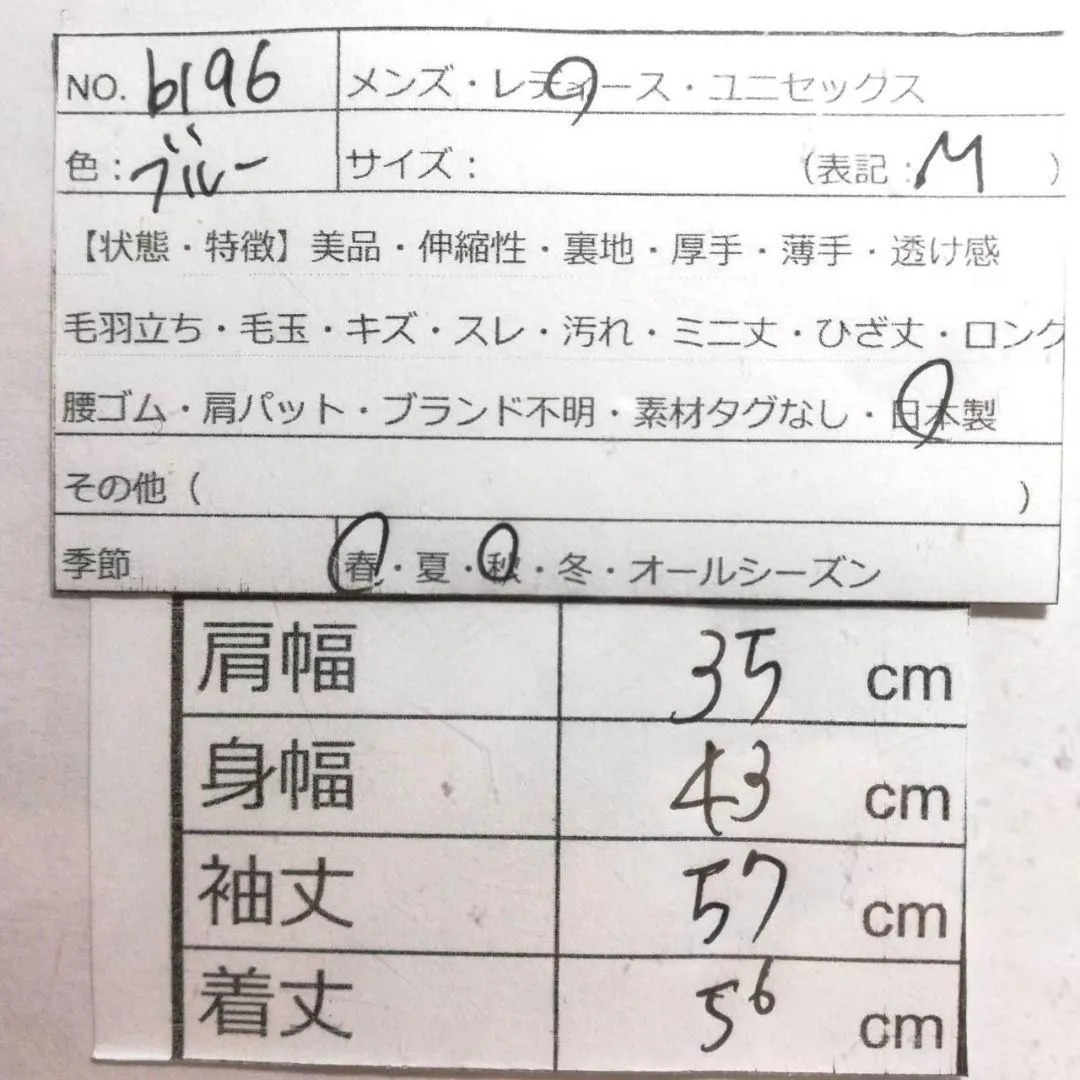 NO. b196 メンズ・レディース・ユニセックス
色：ブルー サイズ： （表記：M ）
【状態・特徴】美品・伸縮性・裏地・厚手・薄手・透け感
毛羽立ち・毛玉・キズ・スレ・汚れ・ミニ丈・ひざ丈・ロング
腰ゴム・肩パット・ブランド不明・素材タグなし・日本製
その他（ ）
季節 春・夏・秋・冬・オールシーズン
肩幅 35 cm
身幅 43 cm
袖丈 57 cm
着丈 56 cm